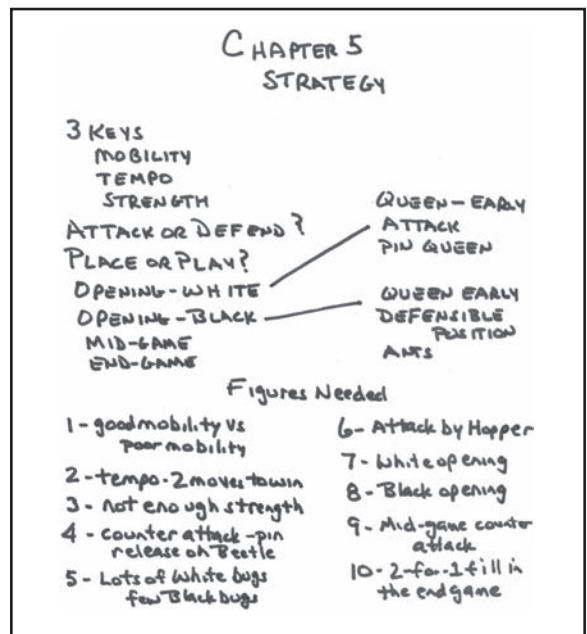 CHAPTER 5
STRATEGY
3 KEYS
MOBILITY
TEMPO
STRENGTH
ATTACK OR DEFEND?
PLACE OR PLAY?
OPENING-WHITE
OPENING-BLACK
MID-GAME
END-GAME
QUEEN-EARLY
ATTACK
PIN QUEEN
QUEEN EARLY
DEFENSIBLE
POSITION
ANTS
Figures Needed
1-good mobility vs
poor mobility
2-tempo-2 moves to win
3-not enough strength
4-counter attack-pin
release on Beetle
5-Lots of White bugs
few Black bugs
6-Attack by Hopper
7-White opening
8-Black opening
9-Mid-game counter
attack
10-2-for-1 fill in
the endgame